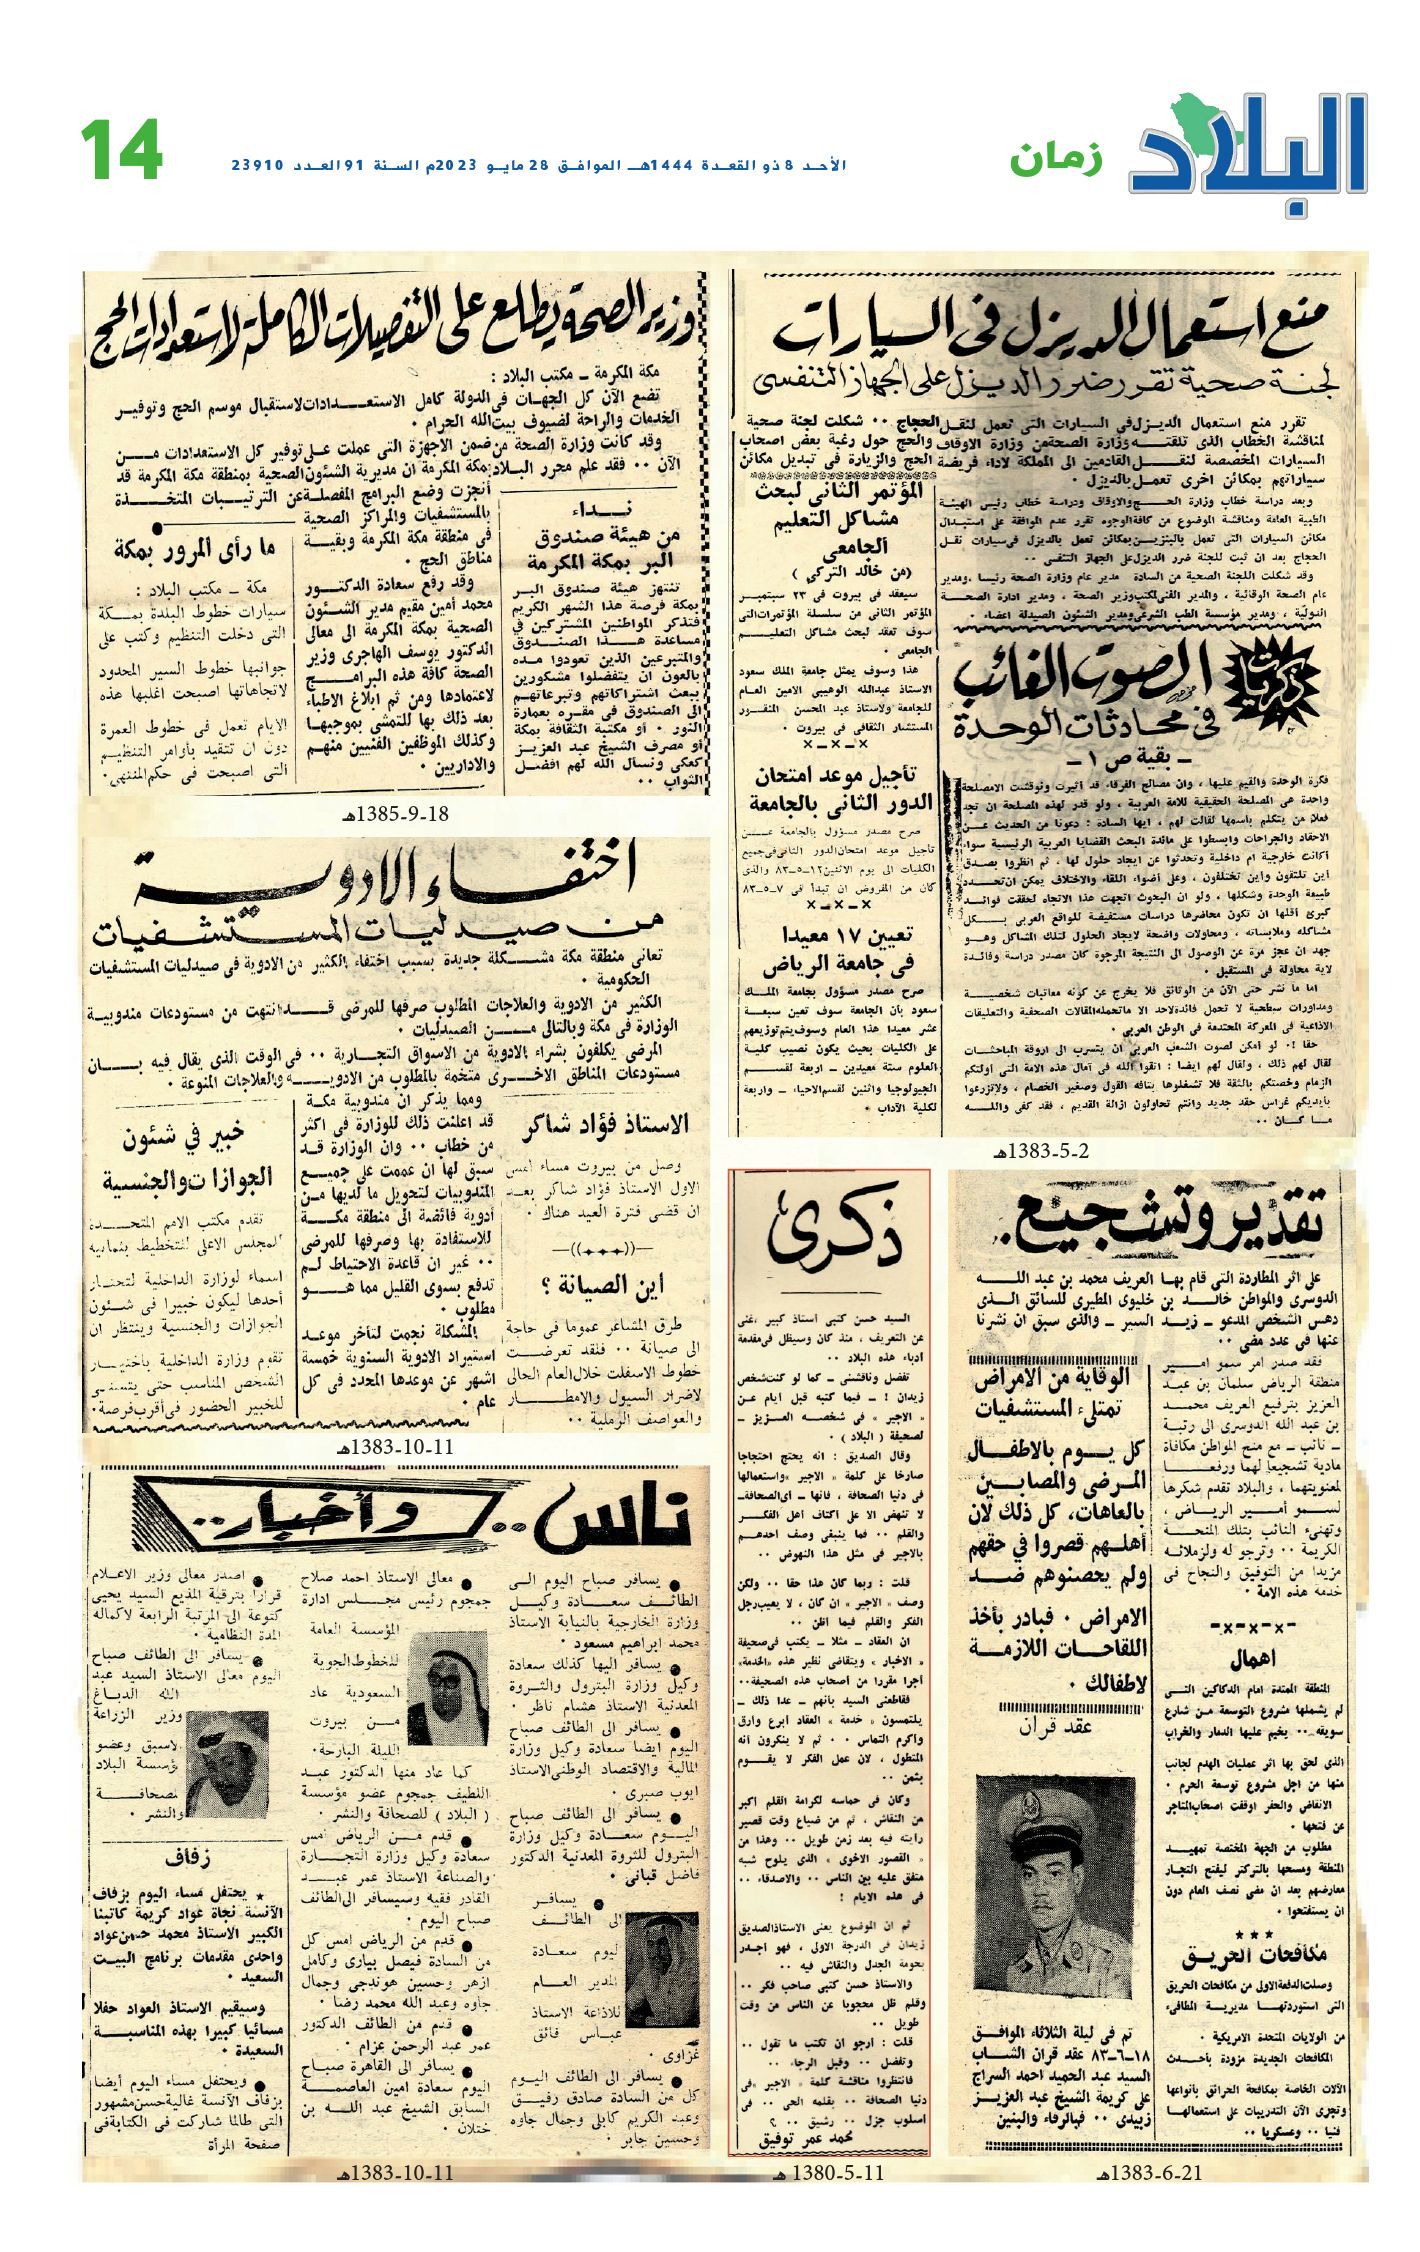 البلاد
زمان
الأحد 8 ذو القعدة 1444هـ الموافق 28 مايو 2023م السنة 91 العدد 23910
14
منع استعمال الديزل في السيارات
لجنة صحية تقرر ضرر الديزل على الجهاز التنفسى
تقرر منع استعمال الديزل في السيارات التى تعمل لنقل الحجاج .. شكلت لجنة صحية
لمناقشة الخطاب الذى تلقته وزارة الصحة من وزارة الاوقاف والحج حول رغبة بعض اصحاب
السيارات المخصصة لنقل القادمين الى المملكة لاداء فريضة الحج والزيارة فى تبديل مكائن
سياراتهم بمكائن اخرى تعمل بالديزل .
وبعد دراسة خطاب وزارة الحج والاوقاف ودراسة خطاب رئيس الهيئة
الطبية العامة ومناقشة الموضوع من كافة الوجوه تقرر عدم الموافقة على استبدال
مكائن السيارات التى تعمل بالبنزين بمكائن تعمل بالديزل فى سيارات نقل
الحجاج بعد ان ثبت للجنة ضرر الديزل على الجهاز التنفسى ..
وقد شكلت اللجنة الصحية من السادة مدير عام وزارة الصحة رئيسا ، ومدير
عام الصحة الوقائية ، والمدير الفنى لمكتب وزير الصحة ، ومدير ادارة الصحة
الدولية ، ومدير مؤسسة الطب الشرعى ومدير الشئون الصيدلة اعضاء .
المؤتمر الثانى لبحث
مشاكل التعليم
الجامعى
(من خالد التركى)
سيعقد فى بيروت فى ٢٣ سبتمبر
المؤتمر الثانى من سلسلة المؤتمرات التى
سوف تعقد لبحث مشاكل التعليم
الجامعى .
هذا وسوف يمثل جامعة الملك سعود
الاستاذ عبدالله الوهيبى الامين العام
للجامعة والاستاذ عبد المحسن المنقور
المستشار الثقافى فى بيروت .
×ـ×ـ×
تأجيل موعد امتحان
الدور الثانى بالجامعة
صرح مصدر مسؤول بالجامعة عن
تأجيل موعد امتحان الدور الثانى فى جميع
الكليات الى يوم الاثنين ١٢-٥-٨٣ والذى
كان من المفروض ان تبدأ فى ٧-٥-٨٣
×ـ×ـ×
تعيين ١٧ معيدا
فى جامعة الرياض
صرح مصدر مسؤول بجامعة الملك
سعود بأن الجامعة سوف تعين سبعة
عشر معيدا هذا العام وسوف يتم توزيعهم
على الكليات بحيث يكون نصيب كلية
العلوم ستة معيدين ـ اربعة لقسم
الجيولوجيا واثنين لقسم الاحياء ـ واربعة
لكلية الآداب .
ذكريات
الصوت الغائب
فى محادثات الوحدة
ـ بقية ص ١ ـ
فكرة الوحدة والقيم عليها ، وان مصالح الفرقاء قد اثيرت ونوقشت الا مصلحة
واحدة هى المصلحة الحقيقية للامة العربية ، ولو قدر لهذه المصلحة ان تجد
فعلا من يتكلم باسمها لقالت لهم ، ايها السادة : دعونا من الحديث عن
الاحقاد والجراحات وابسطوا على مائدة البحث القضايا العربية الرئيسية سواء
اكانت خارجية ام داخلية وتحدثوا عن ايجاد حلول لها ، ثم انظروا بصدق
اين تلتقون واين تختلفون ، وعلى أضواء اللقاء والاختلاف يمكن ان تحدد
طبيعة الوحدة وشكلها ، ولو ان البحوث اتجهت هذا الاتجاه لحققت فوائد
كبرى أقلها ان تكون محاضرها دراسات مستفيضة للواقع العربى بكل
مشاكله وملابساته ، ومحاولات واضحة لايجاد الحلول لتلك المشاكل وهو
جهد ان عجز مرة عن الوصول الى النتيجة المرجوة كان مصدر دراسة وفائدة
لاية محاولة فى المستقبل .
اما ما نشر حتى الآن من الوثائق فلا يخرج عن كونه معاتبات شخصية
ومداورات سطحية لا تحمل فائدة لاحد الا ما تحمله المقالات الصحفية والتعليقات
الاذاعية فى المعركة المحتدمة فى الوطن العربى .
حقا !. لو امكن لصوت الشعب العربى ان يتسرب الى اروقة المباحثات
لقال لهم ذلك ، ولقال لهم ايضا : اتقوا الله فى آمال هذه الامة التى اولتكم
الزمام وخصتكم بالثقة فلا تشغلوها بتافه القول وصغير الخصام ، ولا تزرعوا
بأيديكم غراس حقد جديد وانتم تحاولون ازالة القديم ، فقد كفى والله
ما كان ..
1383-5-2هـ
وزير الصحة يطلع على التفصيلات الكاملة لاستعدادات الحج
مكة المكرمة ـ مكتب البلاد :
تضع الآن كل الجهات فى الدولة كامل الاستعدادات لاستقبال موسم الحج وتوفير
الخدمات والراحة لضيوف بيت الله الحرام .
وقد كانت وزارة الصحة من ضمن الاجهزة التى عملت على توفير كل الاستعدادات من
الآن .. فقد علم محرر البلاد بمكة المكرمة ان مديرية الشئون الصحية بمنطقة مكة المكرمة قد
أنجزت وضع البرامج المفصلة عن الترتيبات المتخذة
بالمستشفيات والمراكز الصحية
فى منطقة مكة المكرمة وبقية
مناطق الحج .
وقد رفع سعادة الدكتور
محمد أمين مقيم مدير الشئون
الصحية بمكة المكرمة الى معالى
الدكتور يوسف الهاجرى وزير
الصحة كافة هذه البرامج
لاعتمادها ومن ثم ابلاغ الاطباء
بعد ذلك بها للتمشى بموجبها
وكذلك الموظفين الفنيين منهم
والاداريين .
نداء
من هيئة صندوق
البر بمكة المكرمة
تنتهز هيئة صندوق البر
بمكة فرصة هذا الشهر الكريم
فتذكر المواطنين المشتركين فى
مساعدة هذا الصندوق
والمتبرعين الذين تعودوا مده
بالعون ان يتفضلوا مشكورين
ببعث اشتراكاتهم وتبرعاتهم
الى الصندوق فى مقره بعمارة
النور . أو مكتبة الثقافة بمكة
أو مصرف الشيخ عبد العزيز
كعكى ونسال الله لهم افضل
الثواب ..
ما رأى المرور بمكة
مكة ـ مكتب البلاد :
سيارات خطوط البلدة بمكة
التى دخلت التنظيم وكتب على
جوانبها خطوط السير المحدود
لاتجاهاتها اصبحت اغلبها هذه
الايام تعمل فى خطوط العمرة
دون ان تتقيد بأوامر التنظيم
التى اصبحت فى حكم المنتهى.
1385-9-18هـ
اختفاء الادوية
من صيدليات المستشفيات
تعانى منطقة مكة مشكلة جديدة بسبب اختفاء الكثير من الادوية فى صيدليات المستشفيات
الحكومية .
الكثير من الادوية والعلاجات المطلوب صرفها للمرضى قد انتهت من مستودعات مندوبية
الوزارة فى مكة وبالتالى من الصيدليات .
المرضى يكلفون بشراء الادوية من الاسواق التجارية .. فى الوقت الذى يقال فيه بان
مستودعات المناطق الاخرى متخمة بالمطلوب من الادوية والعلاجات المنوعة .
ومما يذكر ان مندوبية مكة
قد اعلنت ذلك للوزارة فى اكثر
من خطاب .. وان الوزارة قد
سبق لها ان عممت على جميع
المندوبيات لتحويل ما لديها من
أدوية فائضة الى منطقة مكة
للاستفادة بها وصرفها للمرضى
.. غير ان قاعدة الاحتياط لم
تدفع بسوى القليل مما هو
مطلوب .
المشكلة نجمت لتأخر موعد
استيراد الادوية السنوية خمسة
اشهر عن موعدها المحدد فى كل
عام .
الاستاذ فؤاد شاكر
وصل من بيروت مساء امس
الاول الاستاذ فؤاد شاكر بعد
ان قضى فترة العيد هناك .
اين الصيانة ؟
طرق المشاعر عموما فى حاجة
الى صيانة .. فلقد تعرضت
خطوط الاسفلت خلال العام الحالى
لاضرار السيول والامطار
والعواصف الرملية ..
خبير في شئون
الجوازات والجنسية
تقدم مكتب الامم المتحدة
للمجلس الاعلى للتخطيط بثمانية
اسماء لوزارة الداخلية لتختار
أحدها ليكون خبيرا فى شئون
الجوازات والجنسية وينتظر ان
تقوم وزارة الداخلية باختيار
الشخص المناسب حتى يتسنى
للخبير الحضور فى أقرب فرصة.
1383-10-11هـ
ناس .. وأخبار ..
● يسافر صباح اليوم الى
الطائف سعادة وكيل
وزارة الخارجية بالنيابة الاستاذ
محمد ابراهيم مسعود .
● يسافر إليها كذلك سعادة
وكيل وزارة البترول والثروة
المعدنية الاستاذ هشام ناظر .
● يسافر الى الطائف صباح
اليوم ايضا سعادة وكيل وزارة
المالية والاقتصاد الوطنى الاستاذ
ايوب صبرى .
● يسافر الى الطائف صباح
اليوم سعادة وكيل وزارة
البترول للثروة المعدنية الدكتور
فاضل قبانى .
● يسافر
الى الطائف
اليوم سعادة
المدير العام
للاذاعة الاستاذ
عباس فائق
غزاوى .
● يسافر الى الطائف اليوم
كل من السادة صادق رفيق
وعبد الكريم كابلى وجمال جاوه
وحسين جابر .
● معالى الاستاذ احمد صلاح
جمجوم رئيس مجلس ادارة
المؤسسة العامة
للخطوط الجوية
السعودية عاد
من بيروت
الليلة البارحة.
كما عاد منها الدكتور عبد
اللطيف جمجوم عضو مؤسسة
( البلاد ) للصحافة والنشر .
● قدم من الرياض امس
سعادة وكيل وزارة التجارة
والصناعة الاستاذ عمر عبد
القادر فقيه وسيسافر الى الطائف
صباح اليوم .
● قدم من الرياض امس كل
من السادة فيصل بيارى وكامل
ازهر وحسين هوندجى وجمال
جاوه وعبد الله محمد رضا .
● قدم من الطائف الدكتور
عمر عبد الرحمن عزام .
● يسافر الى القاهرة صباح
اليوم سعادة امين العاصمة
السابق الشيخ عبد الله بن
خثلان .
● اصدر معالى وزير الاعلام
قرارا بترقية المذيع السيد يحيى
كتوعة الى المرتبة الرابعة لاكماله
المدة النظامية .
● يسافر الى الطائف صباح
اليوم معالى الاستاذ السيد عبد
الله الدباغ
وزير الزراعة
الاسبق وعضو
مؤسسة البلاد
للصحافة
والنشر .
زفاف
★ يحتفل مساء اليوم بزفاف
الآنسة نجاة عواد كريمة كاتبنا
الكبير الاستاذ محمد حسن عواد
واحدى مقدمات برنامج البيت
السعيد .
وسيقيم الاستاذ العواد حفلا
مسائيا كبيرا بهذه المناسبة
السعيدة .
● ويحتفل مساء اليوم أيضا
بزفاف الآنسة غالية حسن مشهور
التى طالما شاركت فى الكتابة فى
صفحة المرأة
1383-10-11هـ
ذكرى
السيد حسن كتبى استاذ كبير ،غنى
عن التعريف ، منذ كان وسيظل فى مقدمة
ادباء هذه البلاد ..
تفضل وناقشنى ـ كما لو كنت شخص
زيدان ! ـ فيما كتبه قبل ايام عن
« الاجير » فى شخصه العزيز ـ
لصحيفة ( البلاد ) .
وقال الصديق : انه يحتج احتجاجا
صارخا على كلمة « الاجير » واستعمالها
فى دنيا الصحافة ، فانها ـ أى الصحافة ـ
لا تنهض الا على اكتاف اهل الفكر
والقلم .. فما ينبغى وصف احدهم
بالاجير فى مثل هذا النهوض ..
قلت : ربما كان هذا حقا .. ولكن
وصف «الاجير » ان كان ، لا يعيب رجل
الفكر والقلم فيما أظن ..
ان العقاد ـ مثلا ـ يكتب فى صحيفة
« الاخبار » ويتقاضى نظير هذه «الخدمة»
أجرا مقررا من اصحاب هذه الصحيفة..
فقاطعنى السيد بأنهم ـ عدا ذلك ـ
يلتمسون « خدمة » العقاد أبرع وارق
واكرم التماس .. ثم لا ينكرون انه
المتطول ، لان عمل الفكر لا يقوم
بثمن ..
وكان فى حماسه لكرامة القلم اكبر
من النقاش ، ثم من ضياع وقت قصير
رايته فيه بعد زمن طويل .. وهذا من
« القصور الاخوى » الذى يلوح شبه
متفق عليه بين الناس .. والاصدقاء ..
فى هذه الايام !
ثم ان الموضوع يعنى الاستاذ الصديق
زيدان فى الدرجة الاولى ، فهو اجدر
بحومة الجدل والنقاش فيه ..
والاستاذ حسن كتبى صاحب فكر ..
وقلم ظل محجوبا عن الناس من وقت
طويل ..
قلت : ارجو ان تكتب ما تقول ..
وتفضل .. وقبل الرجاء ..
فانتظروا مناقشة كلمة «الاجير »فى
دنيا الصحافة .. بقلمه الحى .. فى
اسلوب جزل .. رشيق .. ؟
محمد عمر توفيق
1380-5-11 هـ
تقدير وتشجيع.
على اثر المطاردة التى قام بها العريف محمد بن عبد الله
الدوسرى والمواطن خالد بن خليوى المطيرى للسائق الذى
دهس الشخص المدعو ـ زيد السير ـ والذى سبق ان نشرنا
عنها فى عدد مضى ..
فقد صدر امر سمو امير
منطقة الرياض سلمان بن عبد
العزيز بترفيع العريف محمد
بن عبد الله الدوسرى الى رتبة
ـ نائب ـ مع منح المواطن مكافأة
مادية تشجيعا لهما ورفعا
لمعنويتهما ، والبلاد تقدم شكرها
لسمو أمير الرياض ،
وتهنىء النائب بتلك المنحة
الكريمة .. وترجو له ولزملائه
مزيدا من التوفيق والنجاح فى
خدمة هذه الامة .
-×-×-×-
اهمال
المنطقة الممتدة امام الدكاكين التى
لم يشملها مشروع التوسعة من شارع
سويقه .. يخيم عليها الدمار والخراب
الذى لحق بها اثر عمليات الهدم لجانب
منها من اجل مشروع توسعة الحرم .
الانقاض والحفر اوقفت اصحاب المتاجر
عن فتحها .
مطلوب من الجهة المختصة تمهيد
المنطقة ومسحها بالتركتر ليفتح التجار
معارضهم بعد ان مضى نصف العام دون
ان يستفتحوا .
★ ★ ★
مكافحات الحريق
وصلت الدفعة الاولى من مكافحات الحريق
التى استوردتها مديرية المطافىء
من الولايات المتحدة الامريكية .
المكافحات الجديدة مزودة بأحدث
الآلات الخاصة بمكافحة الحرائق بأنواعها
وتجرى الآن التدريبات على استعمالها
فنيا .. وعسكريا ..
الوقاية من الامراض
تمتلىء المستشفيات
كل يوم بالاطفال
المرضى والمصابين
بالعاهات، كل ذلك لان
أهلهم قصروا في حقهم
ولم يحصنوهم ضد
الامراض . فبادر بأخذ
اللقاحات اللازمة
لاطفالك .
عقد قران
تم فى ليلة الثلاثاء الموافق
١٨-٦-٨٣ عقد قران الشاب
السيد عبد الحميد احمد السراج
على كريمة الشيخ عبد العزيز
زبيدى .. فبالرفاء والبنين
1383-6-21هـ